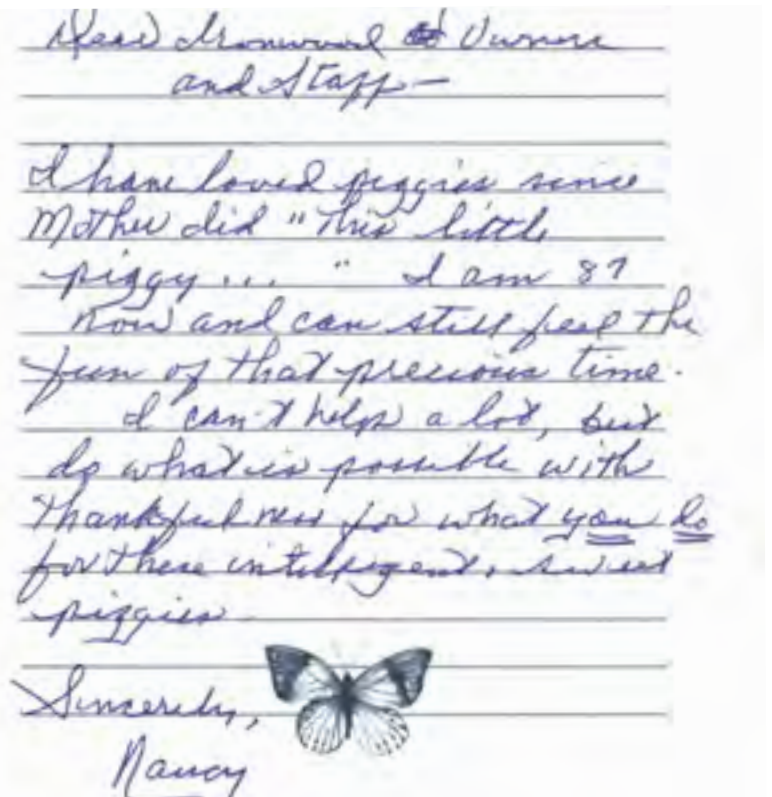 Dear Ironwood Owners
and Staff—
I have loved piggies since
Mother did "This little
piggy... " I am 87
now and can still feel the
fun of that precious time.
I can't help a lot, but
do what is possible with
thankfulness for what you do
for these intelligent, sweet
piggies
Sincerely,
Nancy